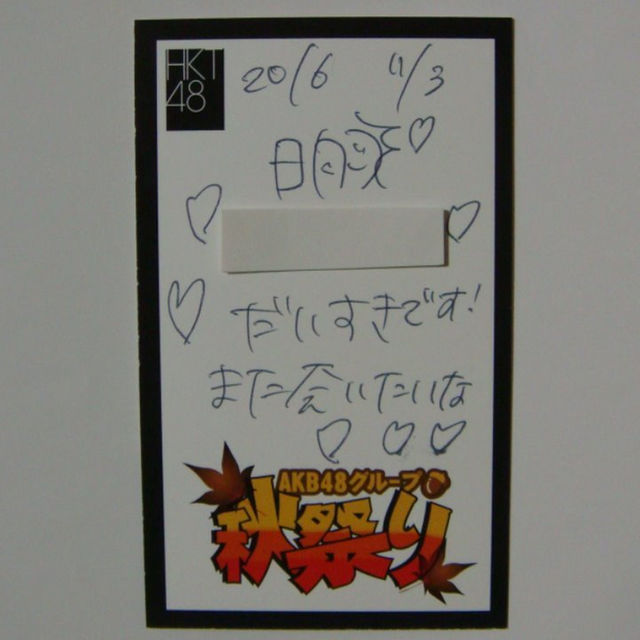 HKT
48
2016 11/3
だいすきです!
また会いたいな
AKB48グループ
秋祭り